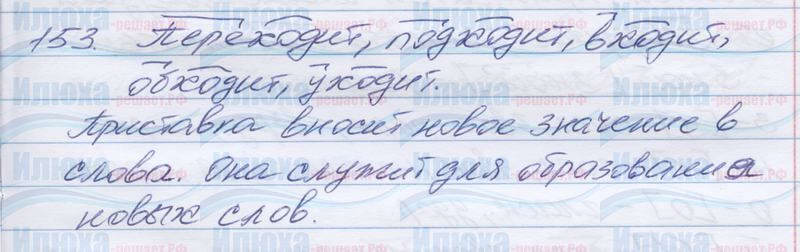 153. Переходит, подходит, входит,
обходит, уходит.
Приставка вносит новое значение в
слова. Она служит для образования
новых слов.